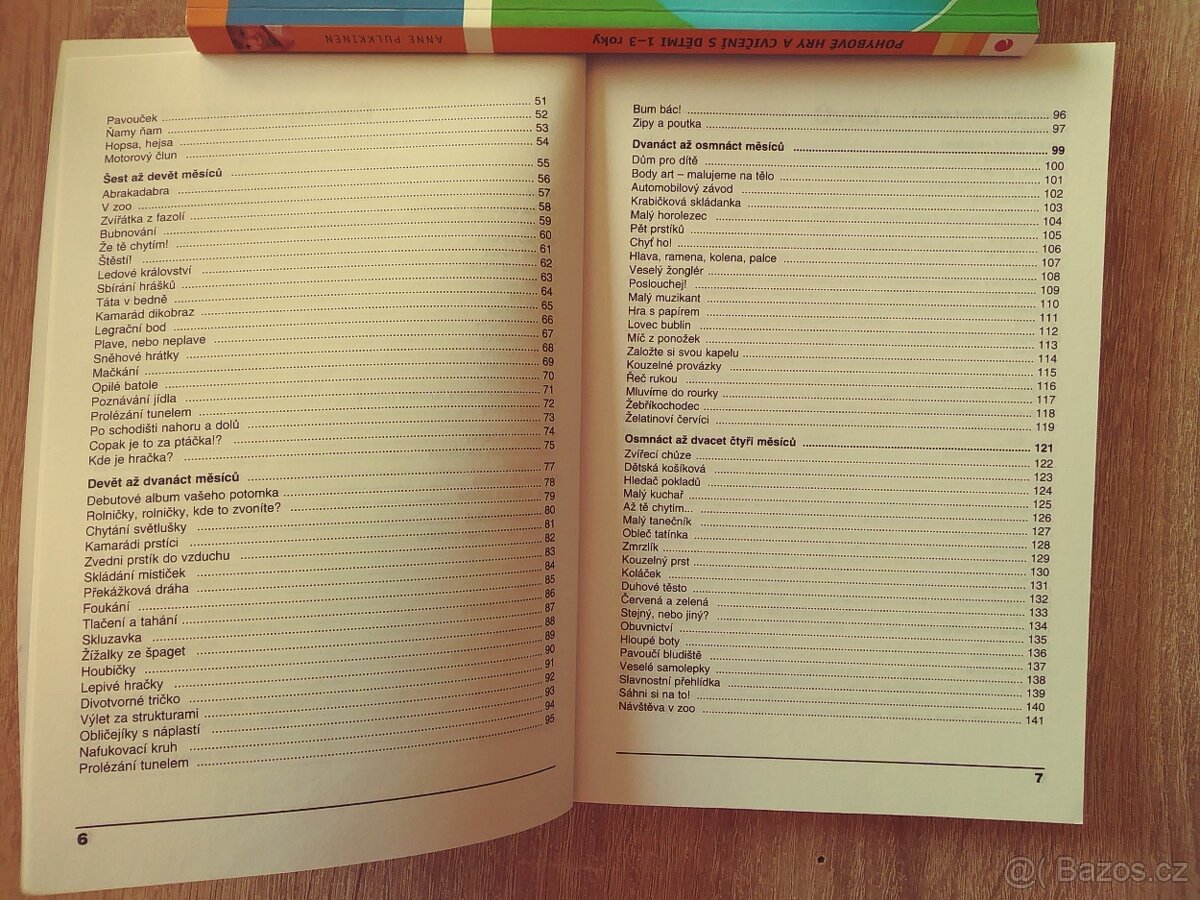 ANNE PULKKINEN
POHYBOVÉ HRY A CVIČENÍ S DĚTMI 1–3 roky
Pavouček 51
Ňamy ňam 52
Hopsa, hejsa 53
Motorový člun 54
Šest až devět měsíců 55
Abrakadabra 56
V zoo 57
Zvířátka z fazolí 58
Bubnování 59
Že tě chytím! 60
Štěstí! 61
Ledové království 62
Sbírání hrášků 63
Táta v bedně 64
Kamarád dikobraz 65
Legrační bod 66
Plave, nebo neplave 67
Sněhové hrátky 68
Mačkání 69
Opilé batole 70
Poznávání jídla 71
Prolézání tunelem 72
Po schodišti nahoru a dolů 73
Copak je to za ptáčka!? 74
Kde je hračka? 75
Devět až dvanáct měsíců 77
Debutové album vašeho potomka 78
Rolničky, rolničky, kde to zvoníte? 79
Chytání světlušky 80
Kamarádi prstíci 81
Zvedni prstík do vzduchu 82
Skládání mističek 83
Překážková dráha 84
Foukání 85
Tlačení a tahání 86
Skluzavka 87
Žížalky ze špaget 88
Houbičky 89
Lepivé hračky 90
Divotvorné tričko 91
Výlet za strukturami 92
Obličejíky s náplastí 93
Nafukovací kruh 94
Prolézání tunelem 95
6
Bum bác! 96
Zipy a poutka 97
Dvanáct až osmnáct měsíců 99
Dům pro dítě 100
Body art – malujeme na tělo 101
Automobilový závod 102
Krabičková skládanka 103
Malý horolezec 104
Pět prstíků 105
Chyť ho! 106
Hlava, ramena, kolena, palce 107
Veselý žonglér 108
Poslouchej! 109
Malý muzikant 110
Hra s papírem 111
Lovec bublin 112
Míč z ponožek 113
Založte si svou kapelu 114
Kouzelné provázky 115
Řeč rukou 116
Mluvíme do rourky 117
Žebříkochodec 118
Želatinoví červíci 119
Osmnáct až dvacet čtyři měsíců 121
Zvířecí chůze 122
Dětská košíková 123
Hledač pokladů 124
Malý kuchař 125
Až tě chytim... 126
Malý tanečník 127
Obleč tatínka 128
Zmrzlík 129
Kouzelný prst 130
Koláček 131
Duhové těsto 132
Červená a zelená 133
Stejný, nebo jiný? 134
Obuvnictví 135
Hloupé boty 136
Pavoučí bludiště 137
Veselé samolepky 138
Slavnostní přehlídka 139
Sáhni si na to! 140
Návštěva v zoo 141
7
Bazos.cz